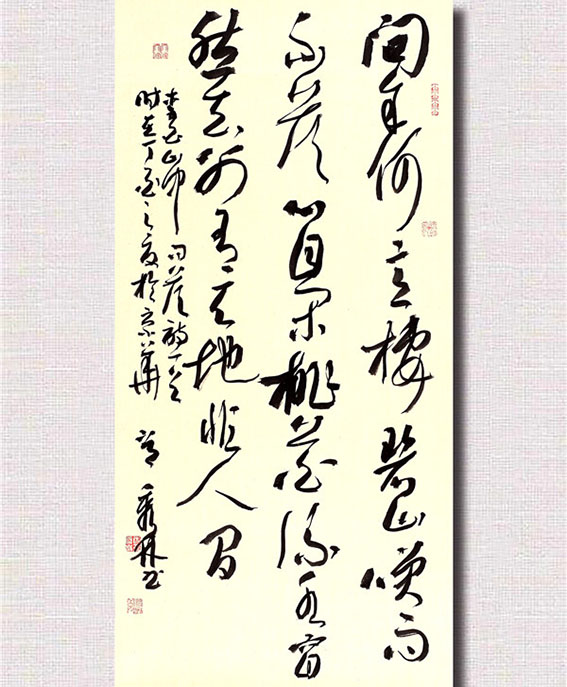 問余何意棲碧山笑而
不答心自閑桃花流水窅
然去別有天地非人間
李白山中問答詩一首
時在丁酉之夏於京華